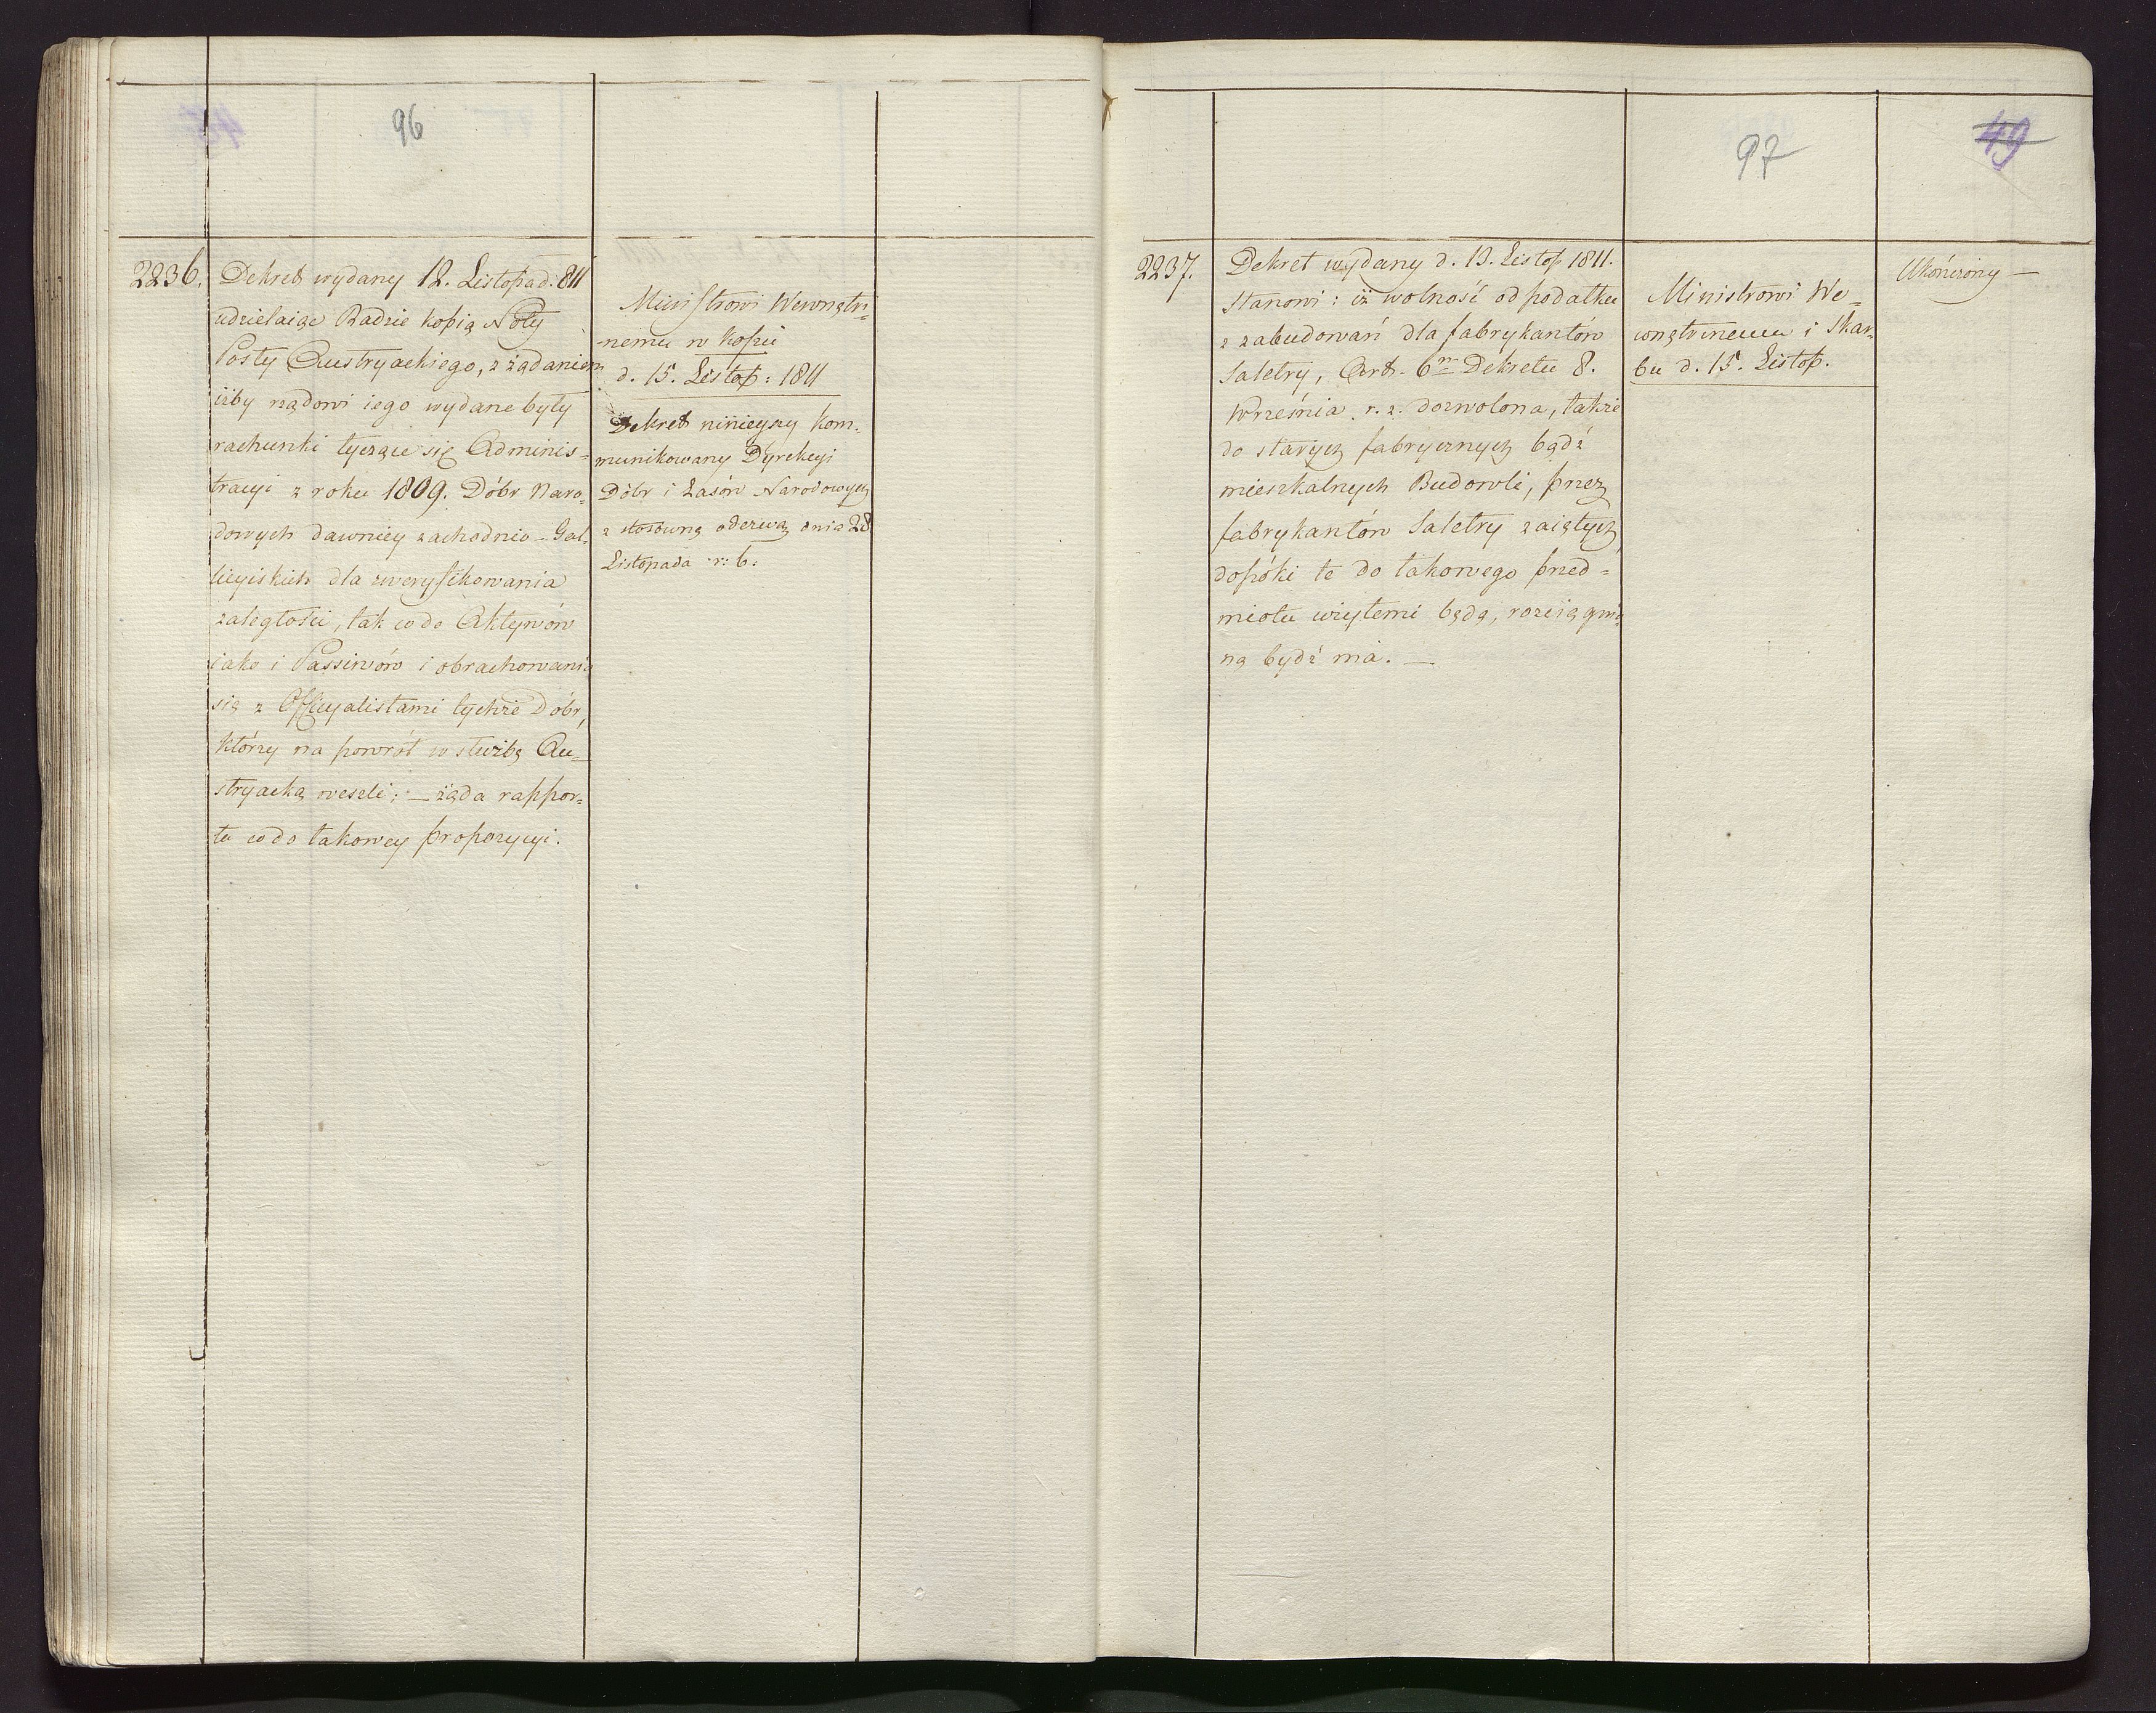 96
2236.
Dekret wydany 12. Listopad. 811
udzielaiąc Radzie kopią Noty
Posły Austryackiego, z żądaniem
iżby rządowi iego wydane były
rachunki tyczące się Adminis=
tracyi z roku 1809. Dóbr Naro=
dowych dawniey zachodnio-Gal=
licyiskich dla zweryfikowania
zaległości, tak co do Aktywów
iako i Passiwów i obrachowania
się z Officyalistami tychże Dóbr,
którzy na powrót w służbę Au=
stryacką weszli; — żąda rappor=
tu co do takowey propozycyi.
Ministrowi Wewnętrz=
nemu w kopii
d. 15. Listop: 1811
Dekret ninieyszy kom=
munikowany Dyrekcyi
Dóbr i Lasów Narodowych
z stosowną odezwą dnia 28
Listopada r: b:
97
49
2237.
Dekret wydany d. 13. Listop 1811.
Stanowi: iż wolność od podatku
z zabudowań dla fabrykantów
Saletry, Art. 6m Dekretu 8.
Września r. z. dozwolona, także
do starych fabrycznych bądź
mieszkalnych Budowli, przez
fabrykantów Saletry zaiętych,
dopóki te do takowego przed=
miotu użytemi będą, rozciągnię
ną bydź ma. —
Ministrowi We=
wnętrznemu i Skar=
bu d. 15. Listop.
Ukończony —